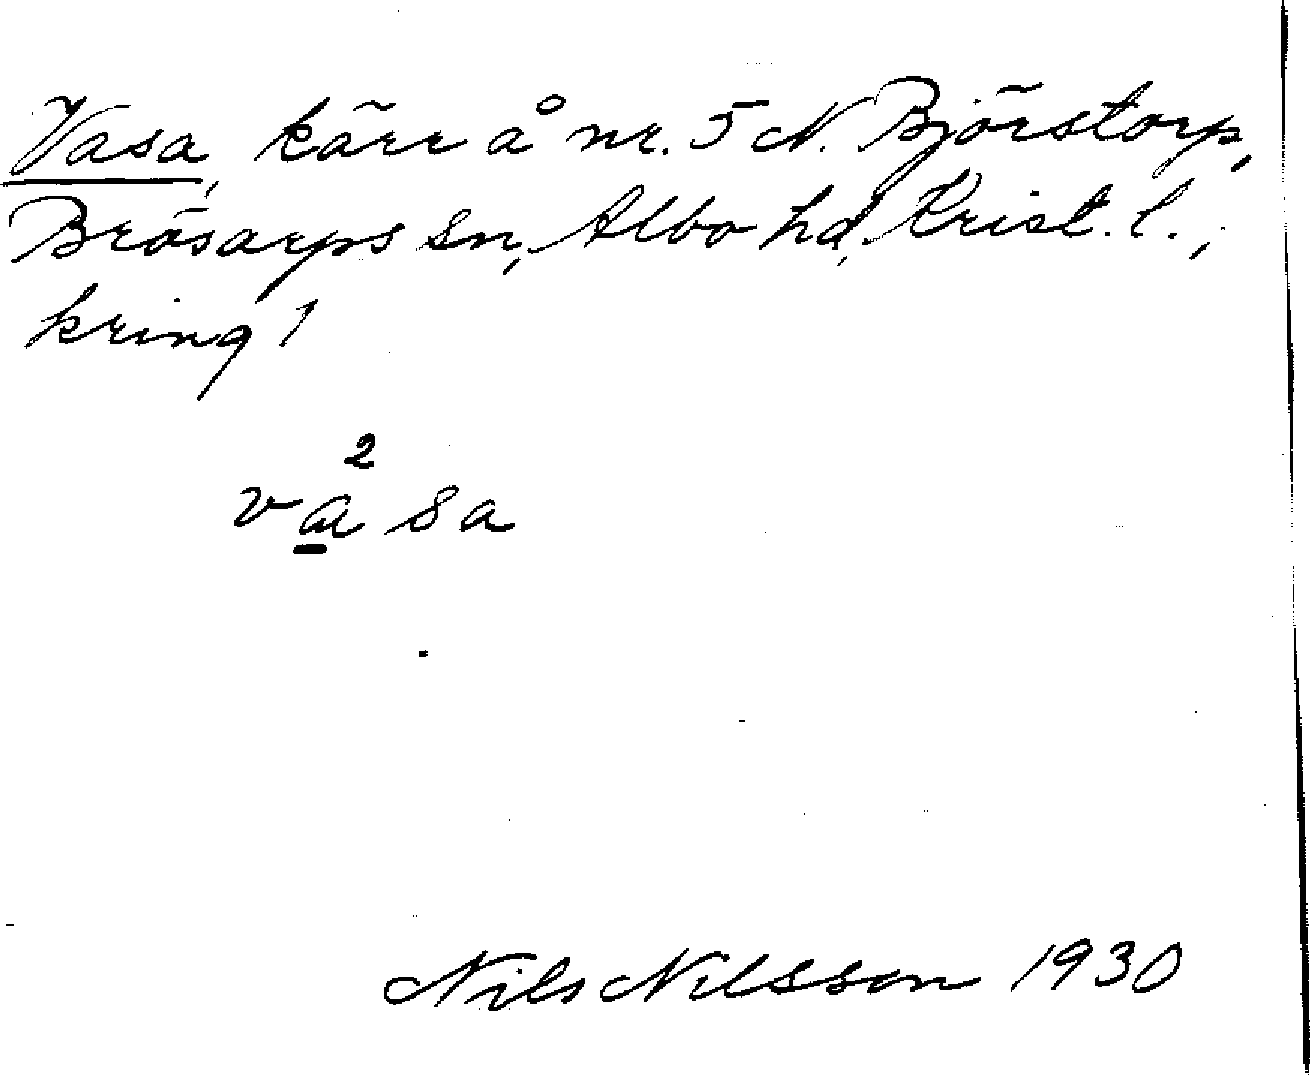 Vasa, kärr å nr. 5 N. Björstorp,
Brösarps sn, Albo hd, Krist. l.,
kring 1
va²sa
Nils Nilsson 1930